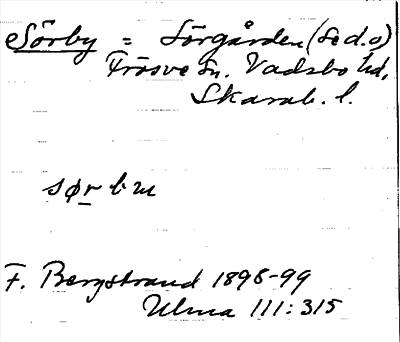 Sörby = Sörgården (se d.o)
Frösve sn. Vadsbo hd,
Skarab. l.
sør bu
F. Bergstrand 1898-99
Ulma 111:315